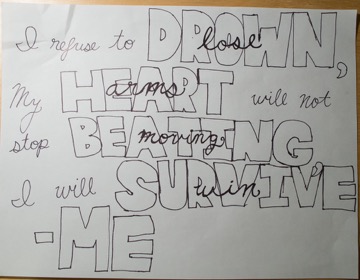 I refuse to DROWN, lose
My HEART arms will not
stop BEATING moving
I will SURVIVE win
-ME